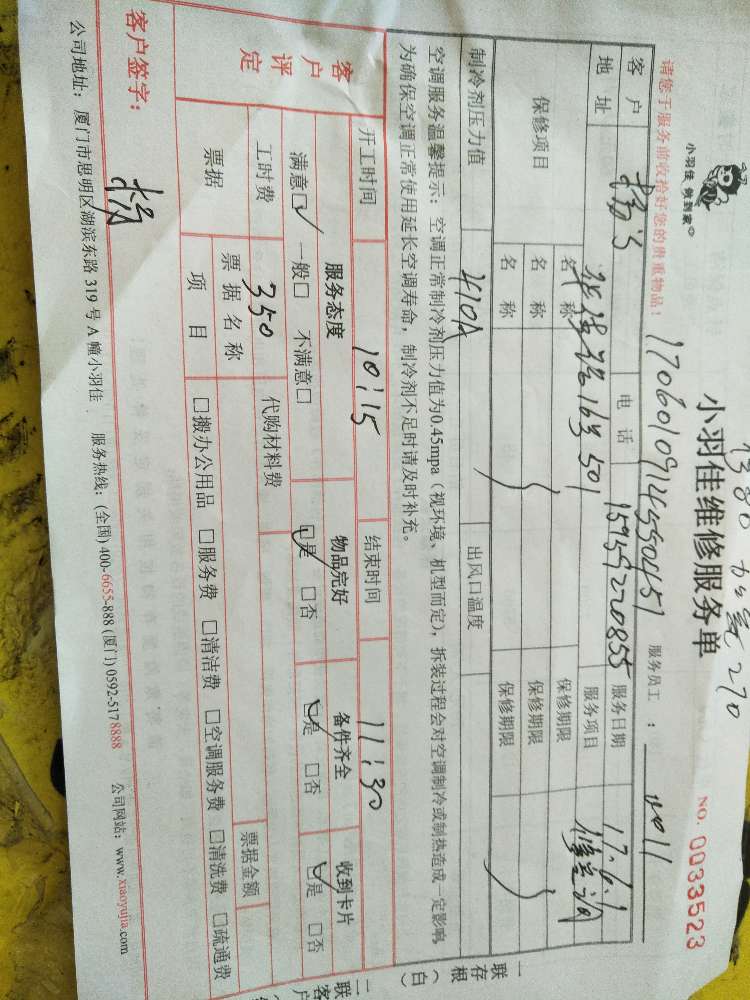 270
小羽佳维修服务单
NO. 0033523
小羽佳 做到家
17060109124550451
请您于服务前收拾好您的贵重物品！
服务员工：
客户
电话 15959220855
服务日期 17.6.1
地址 163 501
服务项目 修空调
保修项目
名称 保修期限
名称 保修期限
名称 保修期限
制冷剂压力值 410A 出风口温度
空调服务温馨提示：空调正常制冷剂压力值为0.45mpa（视环境、机型而定），拆装过程会对空调制冷或制热造成一定影响
为确保空调正常使用延长空调寿命，制冷剂不足时请及时补充。
开工时间 10:15 结束时间 11:30
客户评定
服务态度 物品完好 备件齐全 收到卡片
满意□ 一般□ 不满意□ □是 □否 □是 □否 □是 □否
工时费 350 代购材料费
票据 票据名称 票据金额
项目 □搬办公用品 □服务费 □清洁费 □空调服务费 □清洗费 □疏通费
客户签字： 杨
公司地址：厦门市思明区湖滨东路 319 号 A 幢小羽佳 服务热线：(全国) 400-6655-888 (厦门) 0592-517 8888 公司网站：www.xiaoyujia.com
一联存根（白）
二联客户